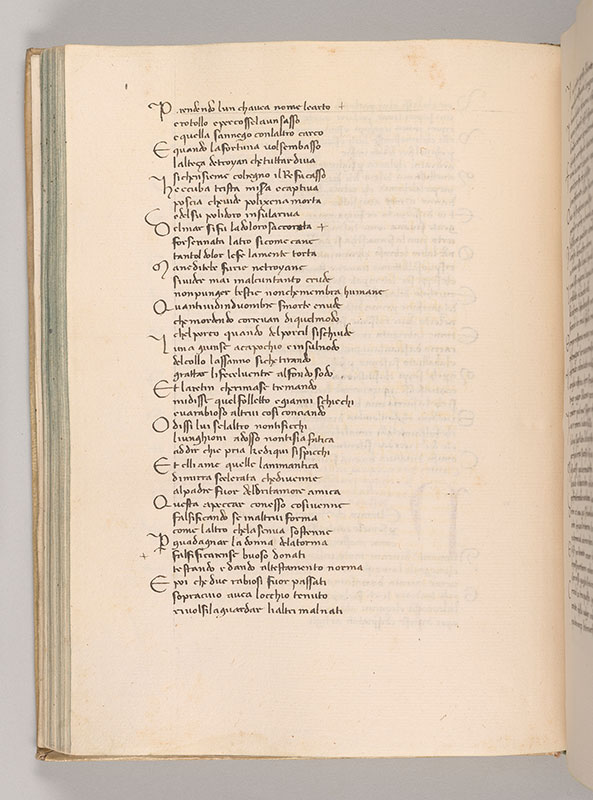 Prendendo lun chavea nome learto +
erotollo epercosselaunsasso
equella sannego conlaltro carco
Equando lafortuna volsembasso
laltega detroyan chetuttardiva
Sichensieme colregno il Re fu casso
Heccuba trista missa ecaptiva
poscia chevide polixena morta
edelsu polidoro insulariva
Delmar sifu ladolorosaccorata +
forsennata latro sicome cane
tantol dolor lefe lamente torta
Maneditebe furie netroyane
sivider mai inalcuntanto crude
nonpunger bestie nonchemembra humane
Quantividinduombre smorte enude
chemordendo correvan diquelmodo
chelporco quando delporcil sischiude
Luna giunse acapochio einsulnodo
delcollo lassanno sichetirando
grattar lifecelventre alfondosodo
Et laretin cherimase tremando
midisse quelfolletto egianni schicchi
evarabioso altrui cosi conciando
O dissi lui selaltro nontificchi
lidenti adosso nontisia fatica
addir chie pria kediqui sispicchi
Et elli ame quelle lanimantica
dimirra scelerata chedivenne
alpadre fuor deldrittamore amica
Questa apeccar conesso cosivenne
falsificando se inaltrui forma
come laltro chelasenva sostenne
P guadagnar la donna delatorma
+ falsificarense buoso donati
testando e dando altestamento norma
E poi che due rabiosi fuor passati
sopracuio avea locchio tenuto
rivolsilaguardar lialtri malnati